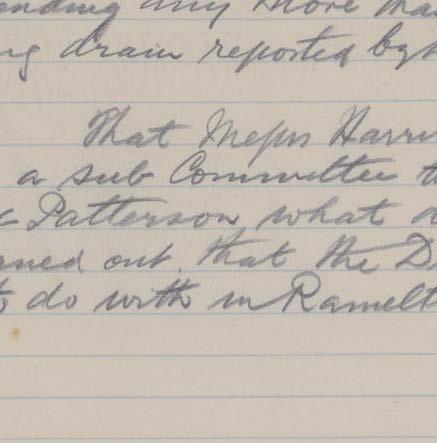 ending any more ma
ng drain reported by
That Messrs Harri
a sub Committee t
Patterson what d
aned out. That the D
to do with in Ramelt